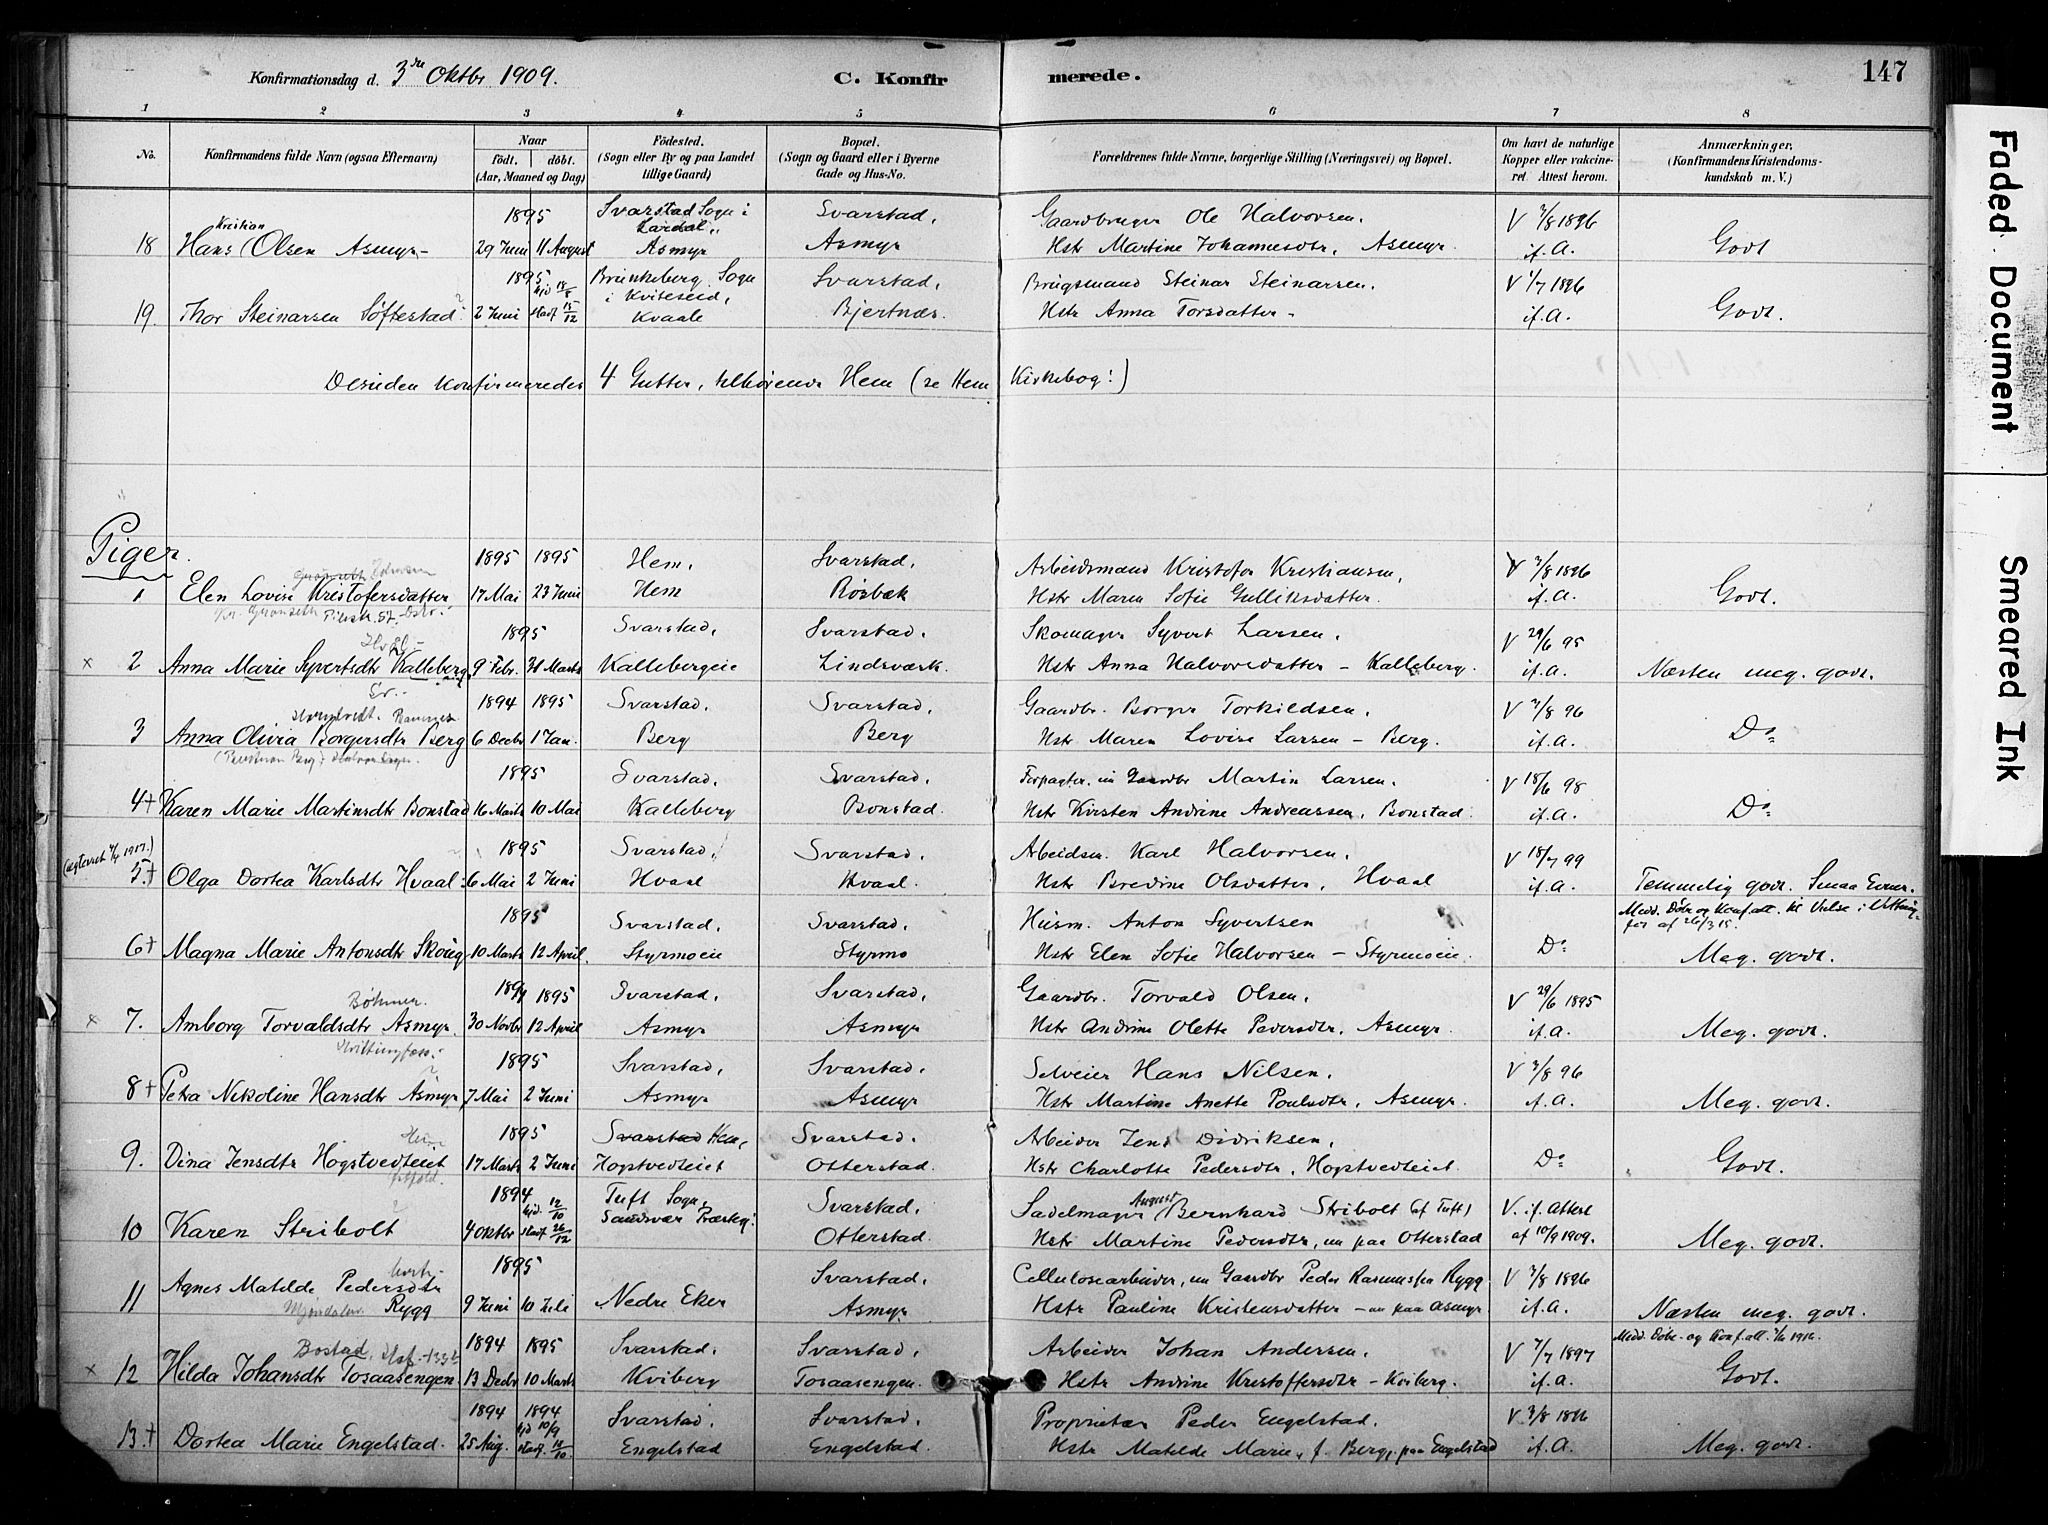 Konfirmationsdag d. 3die Oktbr. 1909. C. Konfirmerede. 147
1 2 3 4 5 6 7 8
No. Konfirmandens fulde Navn (ogsaa Efternavn) Naar födt. döbt. (Aar, Maaned og Dag) Födested. (Sogn eller By og paa Landet tillige Gaard) Bopæl. (Sogn og Gaard eller i Byerne Gade og Hus-No. Forældrenes fulde Navne, borgerlige Stilling (Næringsvei) og Bopæl. Om havt de naturlige Kopper eller vakcineret. Attest herom. Anmærkninger, (Konfirmandens Kristendomskundskab m. V.)
Kristian 1895 Svarstad Sogn i Lardal, Svarstad, Gaardbruger Ole Halvorsen. V 3/8 1896
18 Hans Olsen Asmyr 29 Juni 11 August Asmyr Asmyr Hstr Martine Johannesdtr, Asmyr. if. A. Godt
1895 hjd 18/8 Brunkeberg Sogn i Kviteseid, Svarstad, Brugsmand Steinar Steinarsen. V 1/7 1896
19. Thor Steinarsen Söftestad 2 Juni stadf 15/12 Kvaale Bjertnæs. Hstr Anna Torsdatter if. A. Godt.
Desuden konfirmeredes 4 Gutter, tilhörende Hem (se Hem Kirkebog!)
Piger.
1895 1895 Hem, Svarstad, Arbeidsmand Kristofer Kristiansen, V 3/8 1896
1 Elen Lovise Kristofersdatter 17 Mai 23 Juni Hem Rösbæk Hstr Maren Sofie Gulliksdatter. if. A. Godt.
1895 Svarstad, Svarstad. Skomager Syvert Larsen. V 29/6 95
x 2 Anna Marie Syvertsdtr Kalleberg 9 Febr. 31 Marts Kallebergeie Lindsværk. Hstr Anna Halvorsdatter - Kalleberg. if. A. Næsten meg. godt.
1894 1895 Svarstad. Svarstad. Gaardbr. Borger Torkildsen. V 3/8 96
3 Anna Olivia Borgersdtr Berg 6 Decbr 1 Jan. Berg Berg Hstr Maren Lovise Larsen - Berg. if. A. Do
1895 Svarstad, Svarstad. Forpagter. nu Gaardbr Martin Larsen. V 18/6 98
4+ Karen Marie Martinsdtr Bonstad 16 Marts 10 Mai Kalleberg Bonstad. Hstr Kirsten Andrine Andreassen, Bonstad. if. A. Do
1895 Svarstad, Svarstad. Arbeidsm. Karl Halvorsen. V 18/7 99
5.+ Olga Dortea Karlsdtr Hvaal 6 Mai 2 Juni Hvaal Hvaal. Hstr Bredine Olsdatter, Hvaal if. A. Temmelig godt. Smaa Evner.
1895 Svarstad. Svarstad. Husm. Anton Syvertsen Medd. Döbs og Konf.att. til Vielse i
6+ Magna Marie Antonsdtr Skoug 10 Marts 12 April. Styrmoeie Styrmo Hstr Elen Sofie Halvorsen - Styrmoeie. Do Meg. godt.
Böhmer. 1894 1895 Svarstad, Svarstad, Gaardbr. Torvald Olsen. V 29/6 1895
x 7. Amborg Torvaldsdtr Asmyr. 30 Novbr 12 April Asmyr Asmyr Hstr Andrine Olette Pedersdtr, Asmyr. if. A. Meg. godt.
Hvittingfoss. 1895 Svarstad, Svarstad. Selveier Hans Nilsen. V 3/8 96
8+ Petra Nikoline Hansdtr Asmyr 7 Mai 2 Juni Asmyr Asmyr Hstr Martine Anette Poulsdtr, Asmyr. if. A. Meg. godt.
1895 Svarstad Hem, Svarstad. Arbeider Jens Didriksen.
9. Dina Jensdtr Hogstvedteiet 17 Marts 2 Juni Hogstvedteiet Otterstad. Hstr Charlotte Pedersdtr, Hogstvedteiet. Do Godt.
1894 hjd. 12/10 Tuft Sogn, Sandsvær Præstegj. Svarstad. Sadelmager August Bernhard Stribolt (af Tuft) V. if. Attest
10 Karen Stribolt 4 Oktbr stadf 26/12 Otterstad. Hstr Martine Pedersdtr, nu paa Otterstad af 10/9 1909. Meg. godt.
Agnes Matilde Pedersdtr 1895 Svarstad. Cellulosearbeider, nu Gaardbr Peder Rasmussen Rygg V 3/8 1896
11 Mjøndalen. Rygg 9 Juni 10 Juli Nedre Eker Asmyr Hstr Pauline Kristensdatter - nu paa Asmyr. if. A. Næsten meg. godt.
Bostad 1894 1895 Svarstad. Svarstad. Arbeider Johan Andersen. V 7/7 1897 Medd. Döbs- og Konf.att. 1916.
x 12 Hilda Johansdtr Tosaasengen 13 Decbr 10 Marts Kviberg Tosaasengen. Hstr Andrine Kristoffersdtr - Kviberg. if. A. Godt.
1894 1894 hjd 10/9 Svarstad. Svarstad. Proprietær Peder Engelstad. V 3/8 1896
13+ Dortea Marie Engelstad. 25 Aug. stadf. 14/10 Engelstad Engelstad. Hstr Matilde Marie, f. Berg, paa Engelstad if. A. Meg. godt.
Faded Document
Smeared Ink